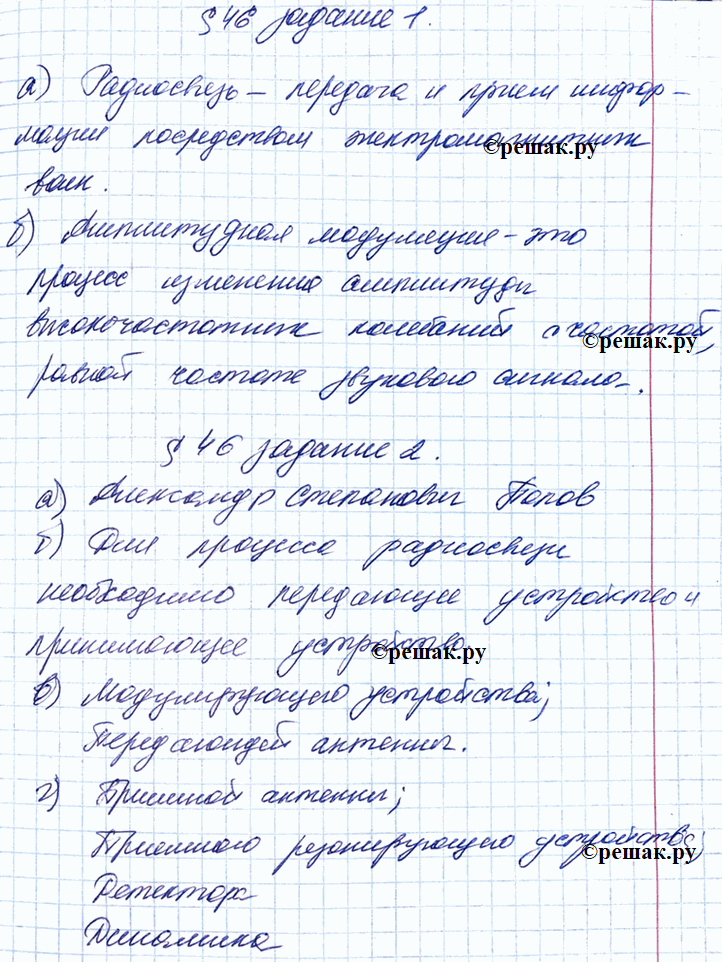 § 46 задание 1.
а) Радиосвязь – передача и прием инфор-
мации посредством электромагнитных
волн.
©решак.ру
б) Амплитудная модуляция – это
процесс изменения амплитуды
высокочастотных колебаний с частотой,
©решак.ру
равной частоте звукового сигнала.
§ 46 задание 2.
а) Александр Степанович Попов
б) Для процесса радиосвязи
необходимо передающее устройство и
принимающее устройство
©решак.ру
в) Модулирующего устройства;
Передающей антенны.
г) Приемной антенны;
Приемного резонирующего устройства;
©решак.ру
Детектора
Динамика